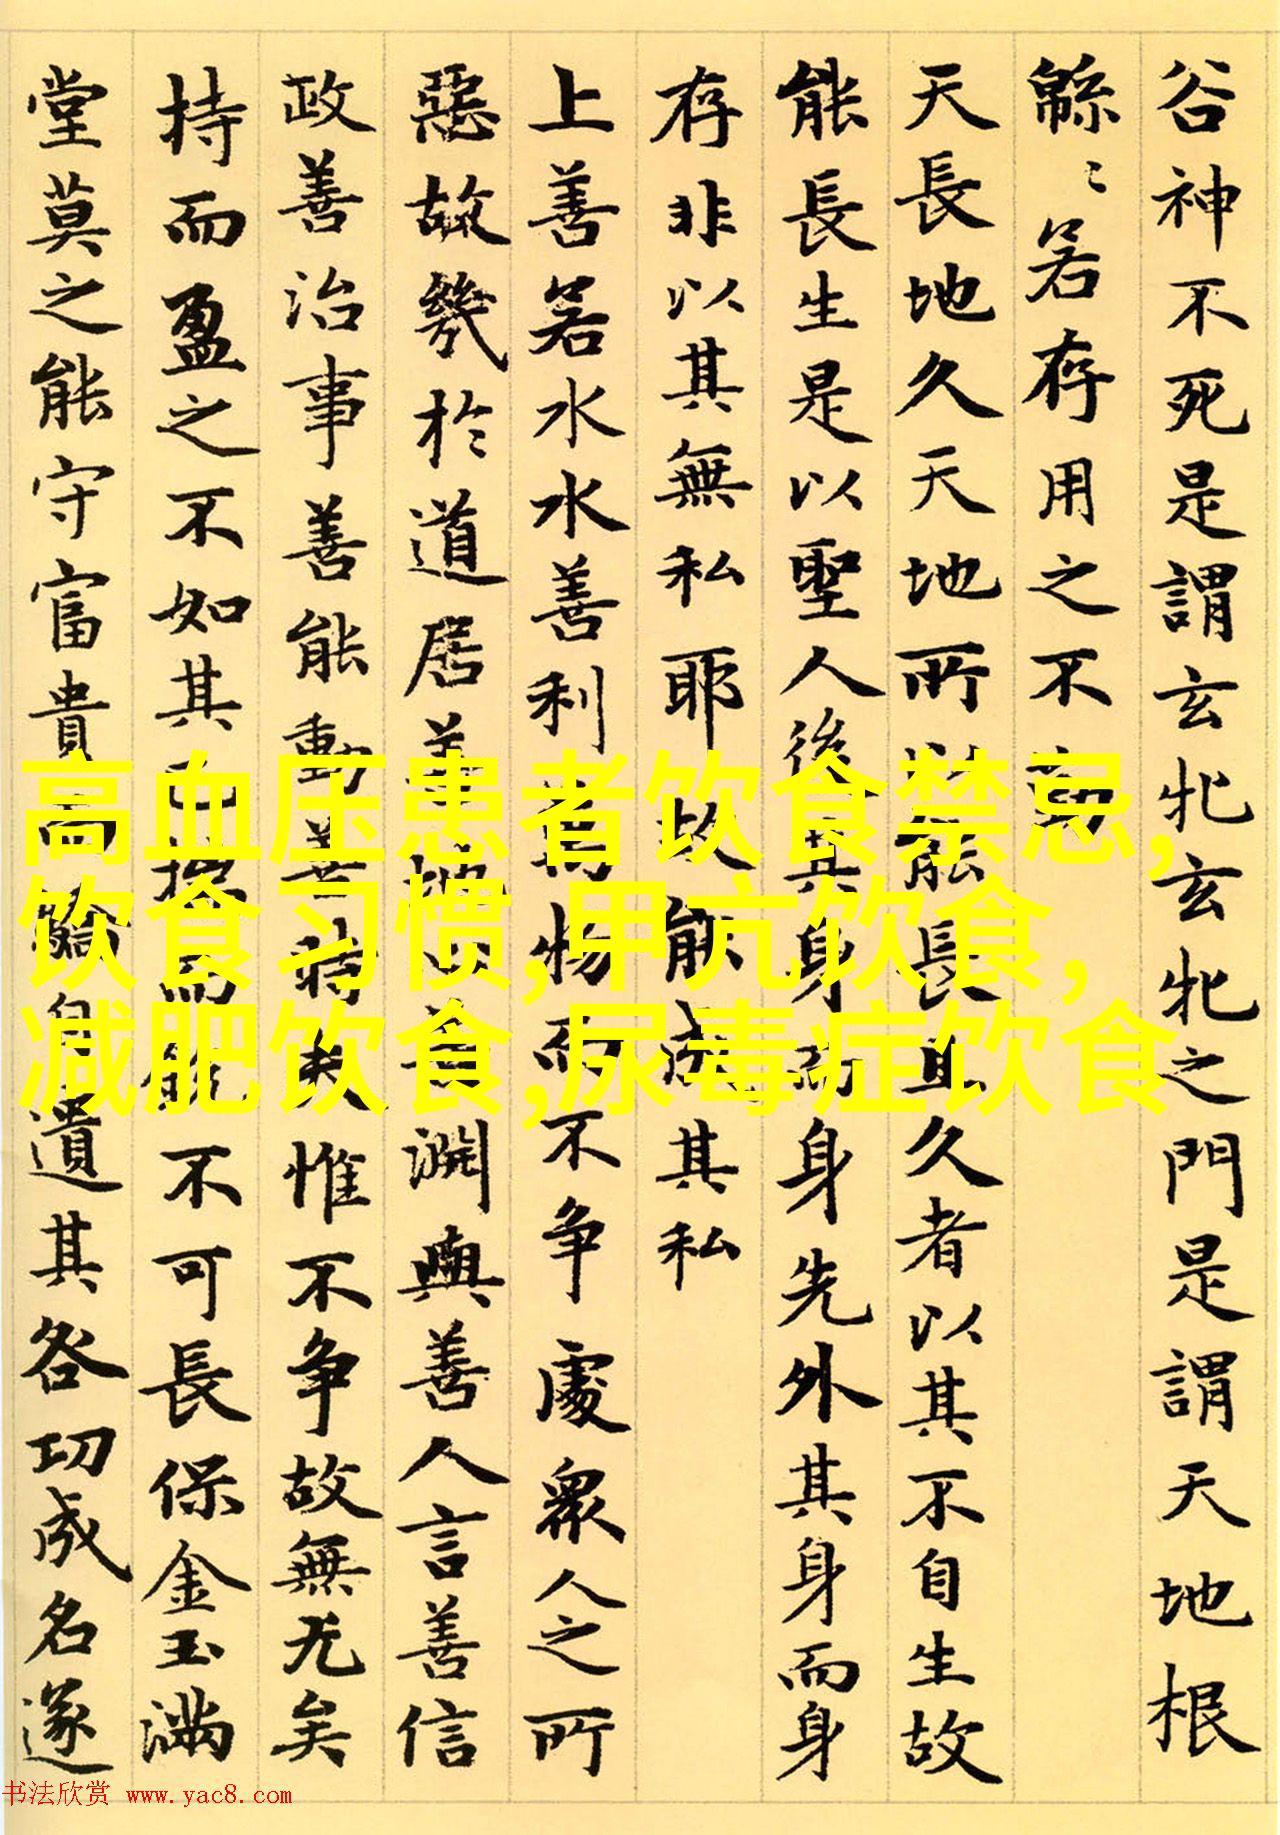 谷神不死是謂玄牝玄牝之門是謂天地根
緜〻若存用之不勤
天長地久天地所以能長且久者以其不自生故
能長生是以聖人後其身而身先外其身而身
存非以其無私耶故能成其私
上善若水水善利萬物而不争處衆人之所
惡故幾於道居善地心善淵與善人言善信
政善治事善能動善時夫惟不争故無尤矣
持而盈之不如其已揣而銳不可長保金玉满
堂莫之能守富貴而驕自遺其咎功成名遂
高血压患者饮食禁忌,
饮食习惯,甲亢饮食,
减肥饮食,尿毒症饮食
书法欣赏 www.yac8.com